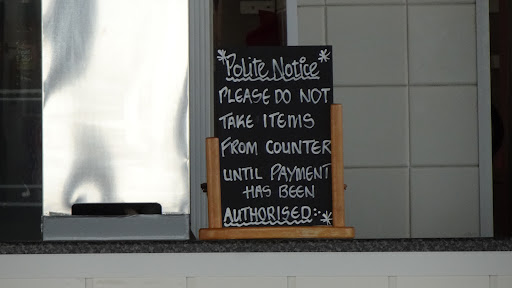 *Polite Notice*
PLEASE DO NOT
TAKE ITEMS
FROM COUNTER
UNTIL PAYMENT
HAS BEEN
AUTHORISED:-*